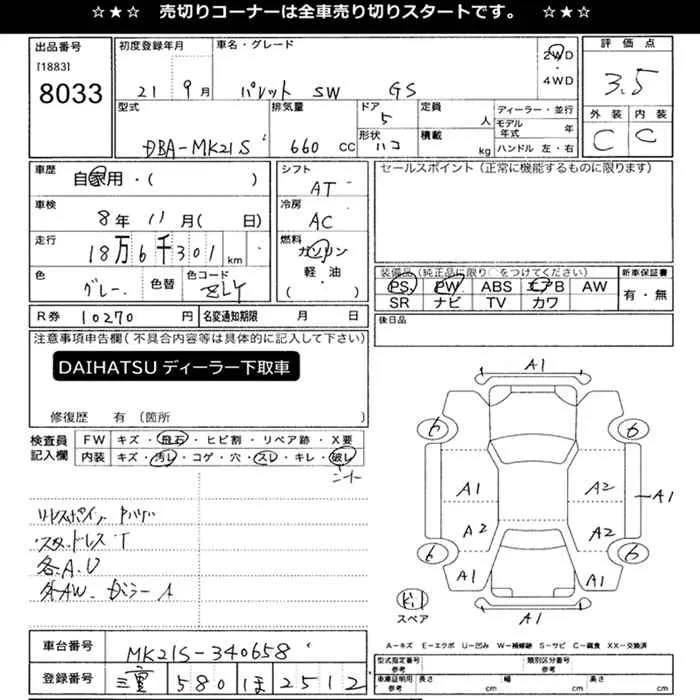 ☆★☆ 売切りコーナーは全車売り切りスタートです。 ☆★☆
出品番号
[1883]
8033
初度登録年月
21 9月
車名・グレード
パレット SW GS
2WD
・
4WD
評価点
3.5
外装 内装
C C
型式
DBA-MK21S
排気量
660 cc
ドア
5
形状
ハコ
定員
人
積載
kg
ディーラー・並行
モデル年式 年
ハンドル 左・右
車歴
自家用・( )
車検
8年 11月( 日)
走行
18万6千301 km
色
グレー
色替
色コード
ZLY
シフト
AT
冷房
AC
燃料
ガソリン
軽・油
( )
セールスポイント(正常に機能するものに限ります)
装備品(純正品に限り○をつけてください)
PS PW ABS エアB AW
SR ナビ TV カワ
新車保証書
有・無
R券 10270 円
名変通知期限 月 日
後日品
注意事項申告欄(不具合内容等は具体的に記入して下さい)
DAIHATSU ディーラー下取車
修復歴 有(箇所 )
検査員
記入欄
FW キズ・飛石・ヒビ割・リペア跡・X要
内装 キズ・汚レ・コゲ・穴・スレ・キレ・破レ
シート
スタッドレスT
各A.U
外AW
A1
6 6
A1 A2
A1
A2 A2
6 6
A1 A1
A1
スペア
A－キズ E－エクボ U－凹み W－補修跡 S－サビ C－腐食 XX－交換済
車台番号
MK21S-340658
登録番号
三重 580 ほ 2512
型式指定番号
参考
類別区分番号
参考
車庫証明用
参考
長さ cm
幅 cm
高さ cm